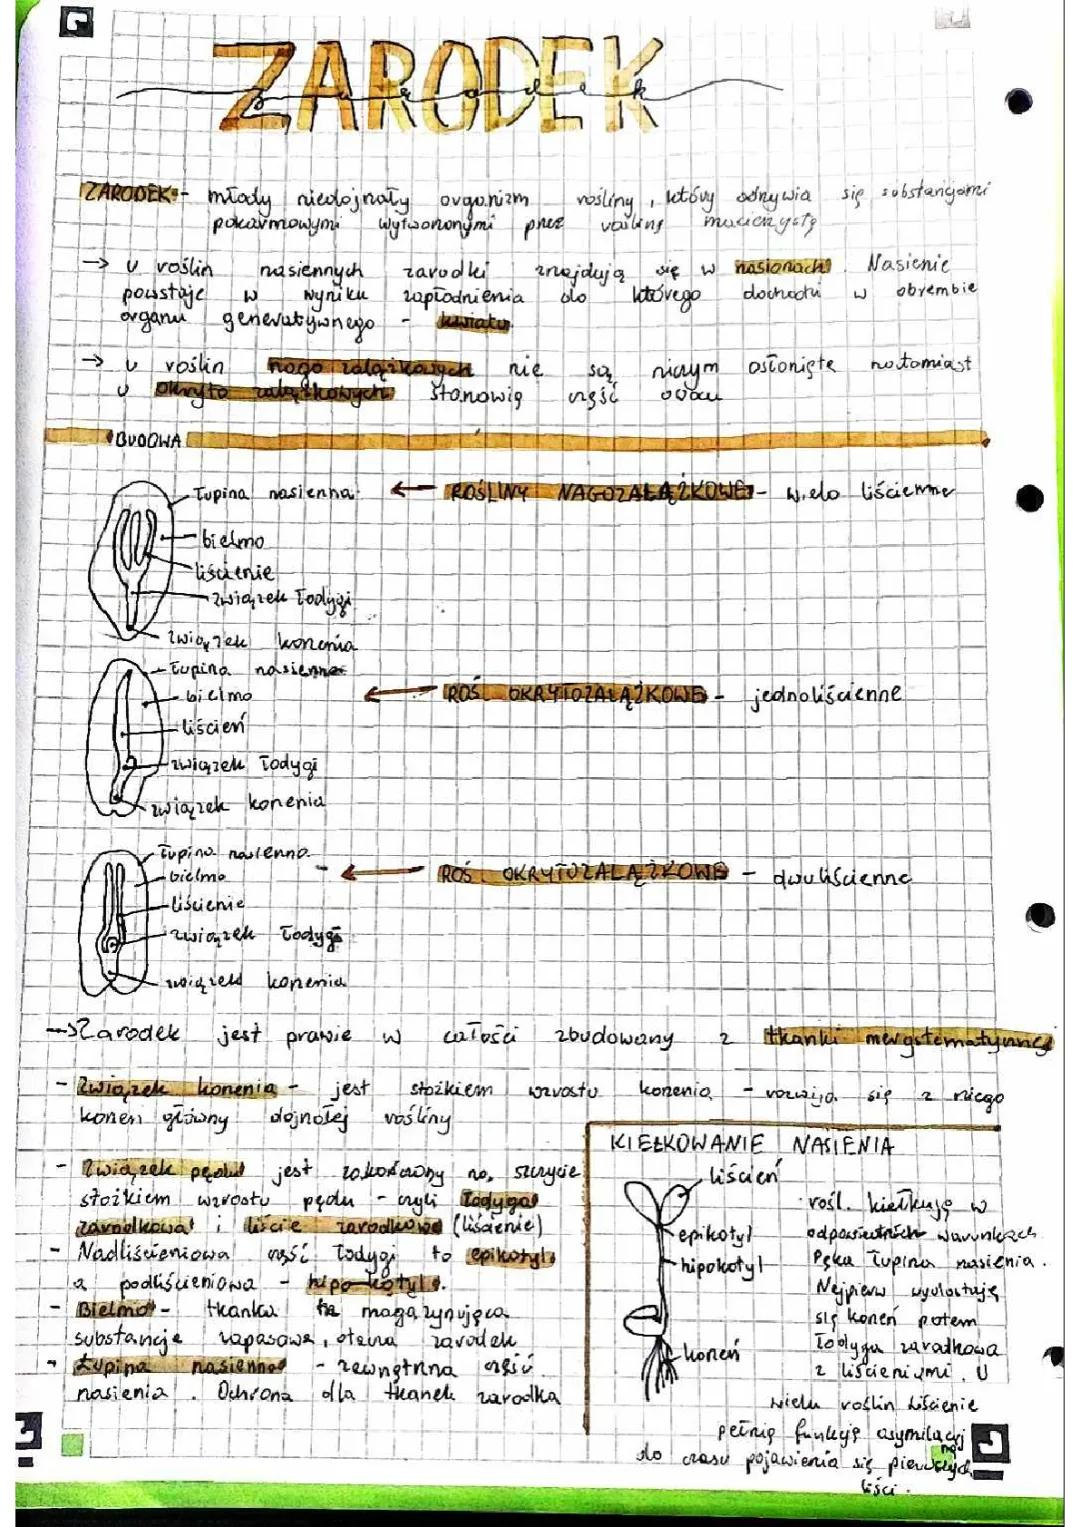 ZARODEK
zarodek
ZARODEK - młody niedojrzały organizm rośliny, który odżywia się substancjami
pokarmowymi wytworzonymi przez roślinę macierzystą
→ U roślin nasiennych zarodki znajdują się w nasionach. Nasienie
powstaje w wyniku zapłodnienia do którego dochodzi w obrębie
organu generatywnego - kwiatu
→ U roślin nago zalążkowych nie są niczym osłonięte natomiast
U okryto zalążkowych stanowią część owocu
BUDOWA
Łupina nasienna ← ROŚLINY NAGOZALĄŻKOWE - wielo liścienne
bielmo
liścienie
związek łodygi
związek korzenia
Łupina nasienna
bielmo ← ROŚL OKRYTOZALĄŻKOWE - jednoliścienne
liścień
związek łodygi
związek korzenia
Łupina nasienna
bielmo ← ROŚ. OKRYTOZALĄŻKOWE - dwuliścienne
liścienie
związek łodygi
związek korzenia
→ Zarodek jest prawie w całości zbudowany z tkanki merystematycznej
- Związek korzenia - jest stożkiem wzrostu korzenia - rozwija się z niego
korzeń główny dojrzałej rośliny
- Związek pędu jest zakończony na szczycie
stożkiem wzrostu pędu - czyli łodyga
zarodkowa i liście zarodkowe (liścienie)
- Nadliścieniowa część łodygi to epikotyl,
a podliścieniowa - hipokotyl.
- Bielmo - tkanka magazynująca
substancje zapasowe, otacza zarodek
- Łupina nasienna - zewnętrzna część
nasienia. Ochrona dla tkanek zarodka
KIEŁKOWANIE NASIENIA
liścień
epikotyl
hipokotyl
korzeń
rośl. kiełkuje w
odpowiednich warunkach
Pęka łupina nasienia.
Najpierw wydostaje
się korzeń potem
łodyga zarodkowa
z liścieniami. U
wielu roślin liścienie
pełnią funkcję asymilacyjną
do czasu pojawienia się pierwszych
liści.